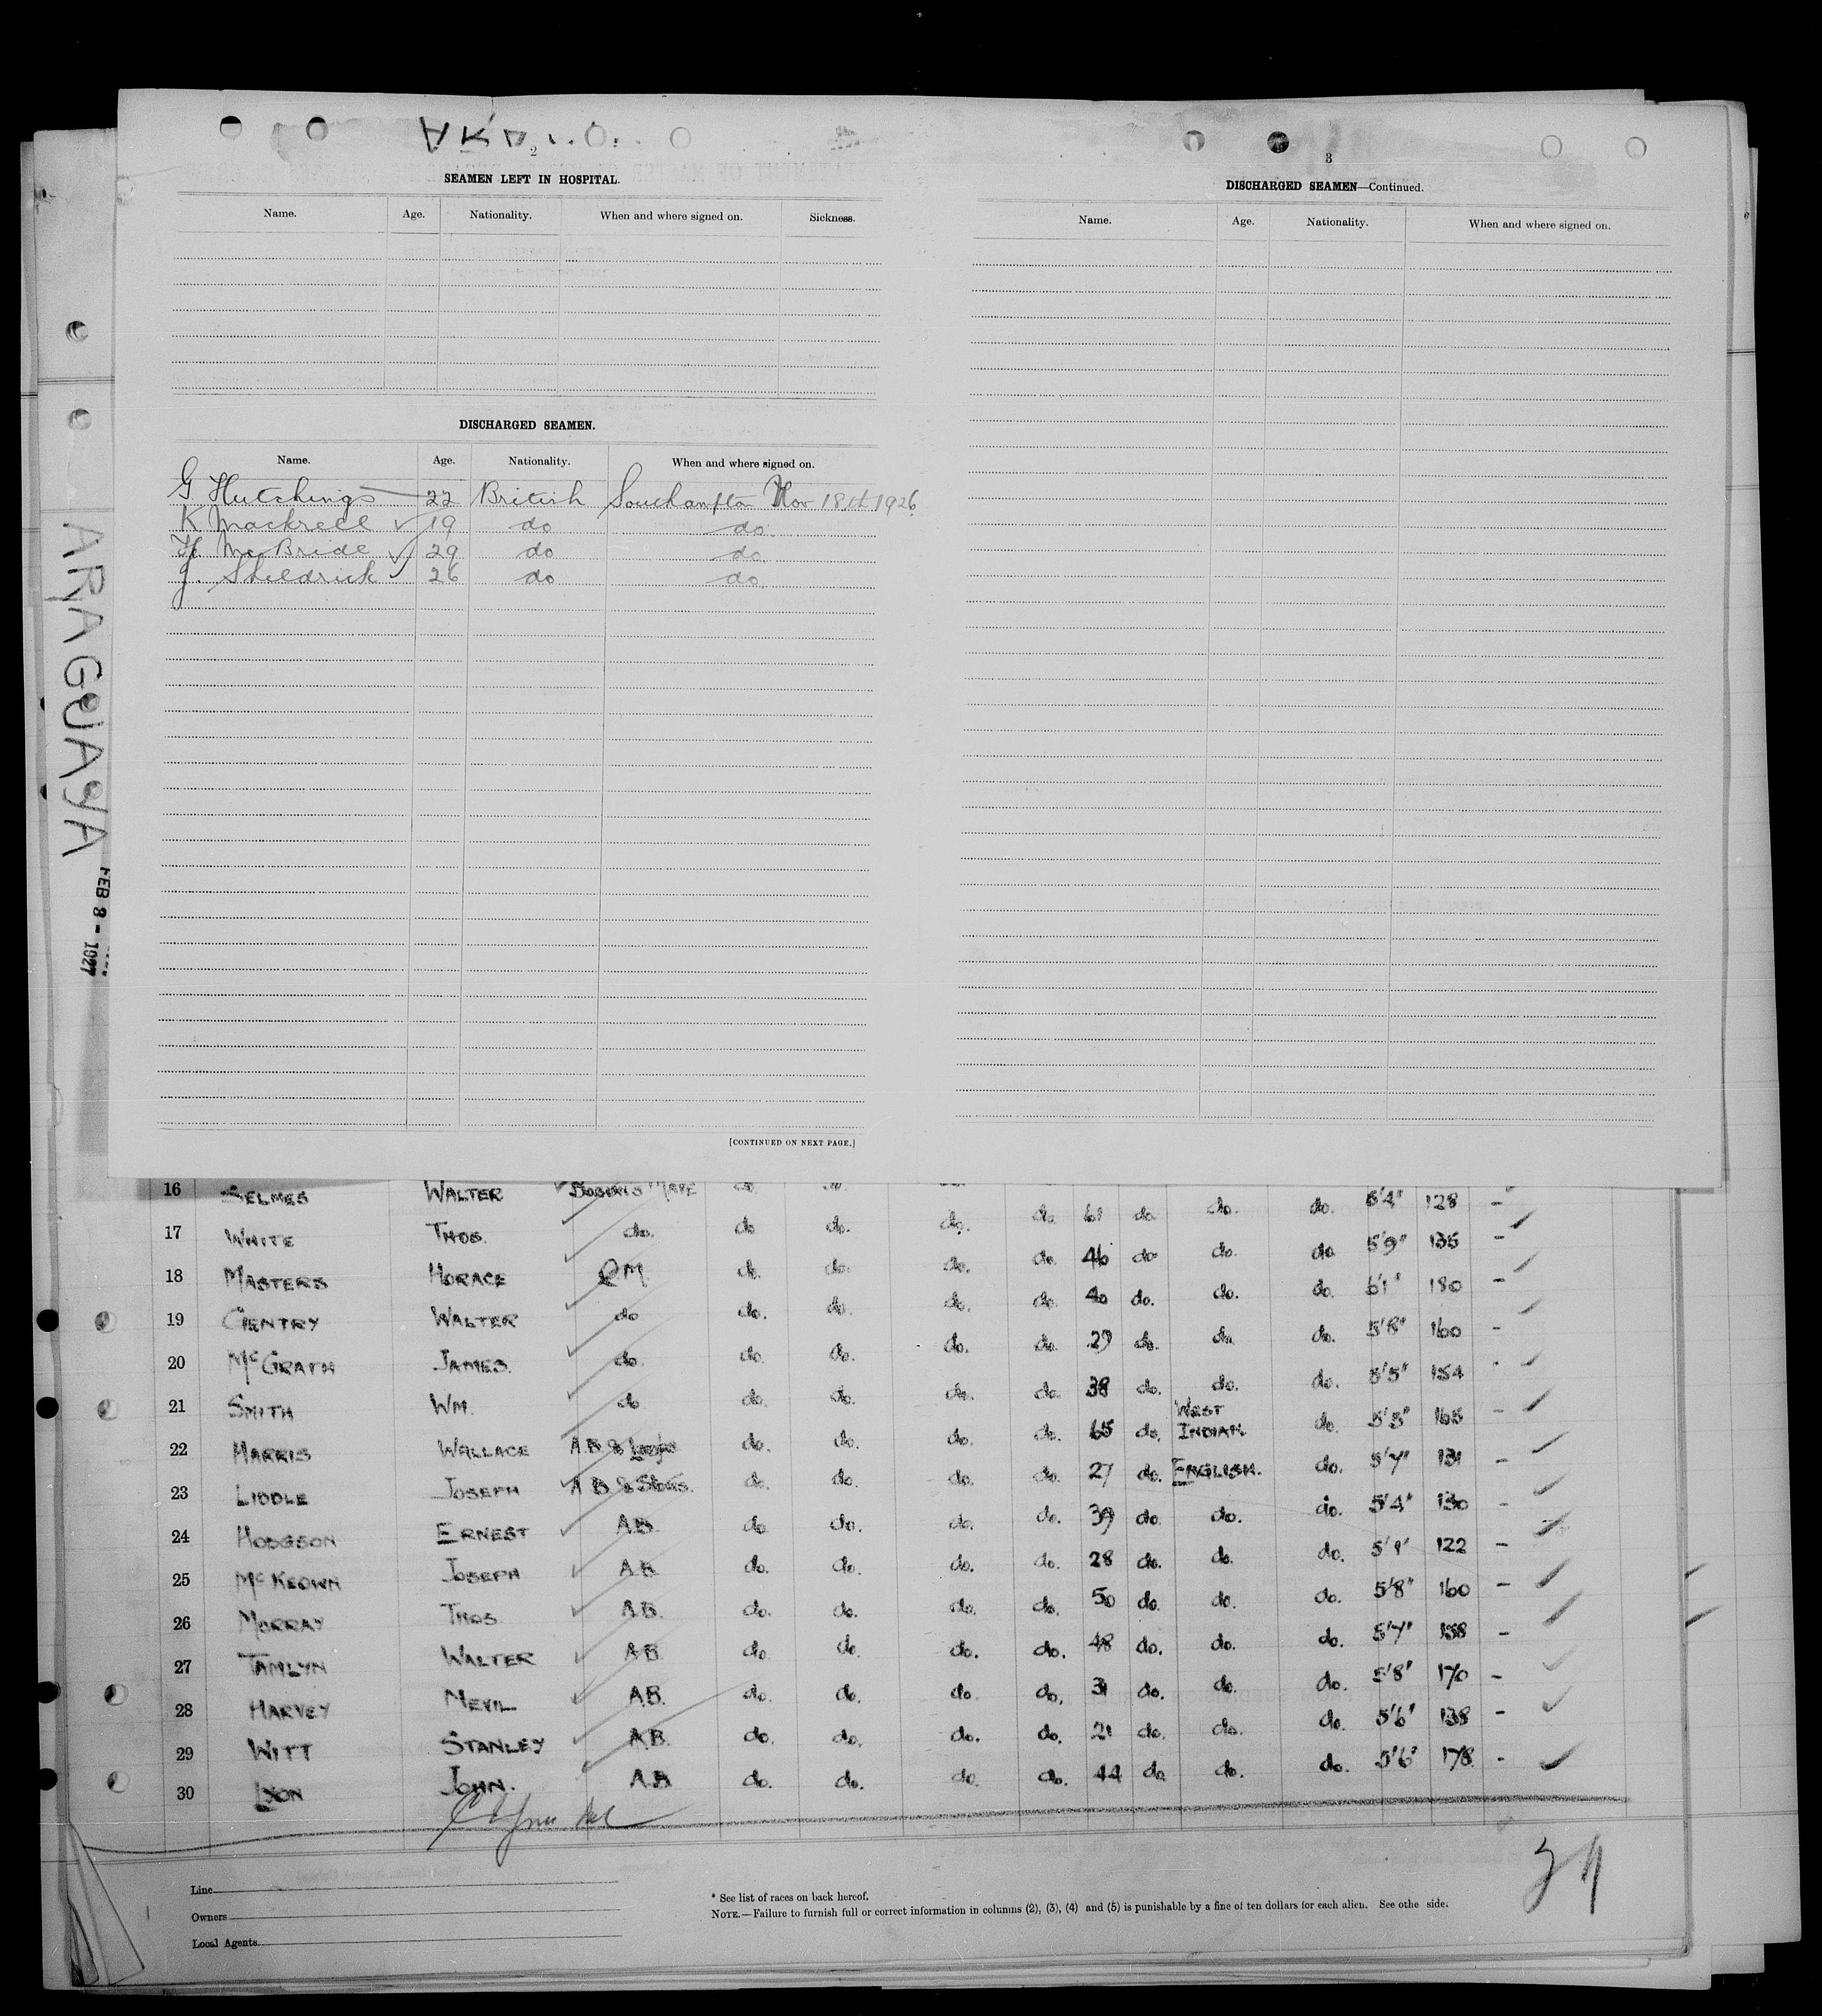 2
SEAMEN LEFT IN HOSPITAL.
Name. Age. Nationality. When and where signed on. Sickness.
DISCHARGED SEAMEN.
Name. Age. Nationality. When and where signed on.
G. Hutchings 22 British Southampton Nov 18th 1926
K Mackrell 19 do do
H. McBride 29 do do
J. Sheldrick 26 do do
[CONTINUED ON NEXT PAGE.]
3
DISCHARGED SEAMEN—Continued.
Name. Age. Nationality. When and where signed on.
ARAGUAYA
FEB 8 - 1927
16 SELMES WALTER do. 61 do do. do. 5'4" 128 -
17 WHITE THOS. do. do do. do. do. 46 do do. do 5'9" 135 -
18 MASTERS HORACE QM do. do. do. do. 40 do. do. do. 6'1" 180 -
19 GENTRY WALTER do do. do. do. do. 29 do. do. do. 5'8" 160 -
20 McGRATH JAMES. do. do. do. do. do. 38 do. do. do. 5'5" 154
21 SMITH WM. do do. do. do. do. 65 do. WEST INDIAN do. 5'5" 165 -
22 HARRIS WALLACE A.B. & do. do. do. do. 27 do. ENGLISH. do. 5'7" 131 -
23 LIDDLE JOSEPH A B & do. do. do. do. 39 do. do. do. 5'4" 130 -
24 HODGSON ERNEST A.B. do do. do. do. 28 do. do. do. 122 -
25 McKEOWN JOSEPH A.B. do. do. do. do. 50 do. do. do. 5'8" 160 -
26 MORRAY THOS. A.B. do. do. do. do. 48 do. do. do. 5'7" 158 -
27 TAMLYN WALTER A.B. do. do. do. do. 31 do. do. do. 5'8" 170 -
28 HARVEY NEVIL A.B. do. do. do. do. 21 do. do. do. 5'6" 138 -
29 WITT STANLEY A.B. do. do. do. do. 44 do do. do. 5'6" 178 -
30 LYON JOHN. A.B do. do. do. do.
Line
Owners
Local Agents
* See list of races on back hereof.
NOTE.—Failure to furnish full or correct information in columns (2), (3), (4) and (5) is punishable by a fine of ten dollars for each alien. See othe side.